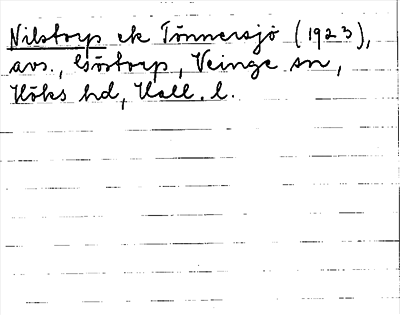 Nilstorp ek Tönnersjö (1923),
avs., Göstorp, Veinge sn,
Höks hd, Hall. l.